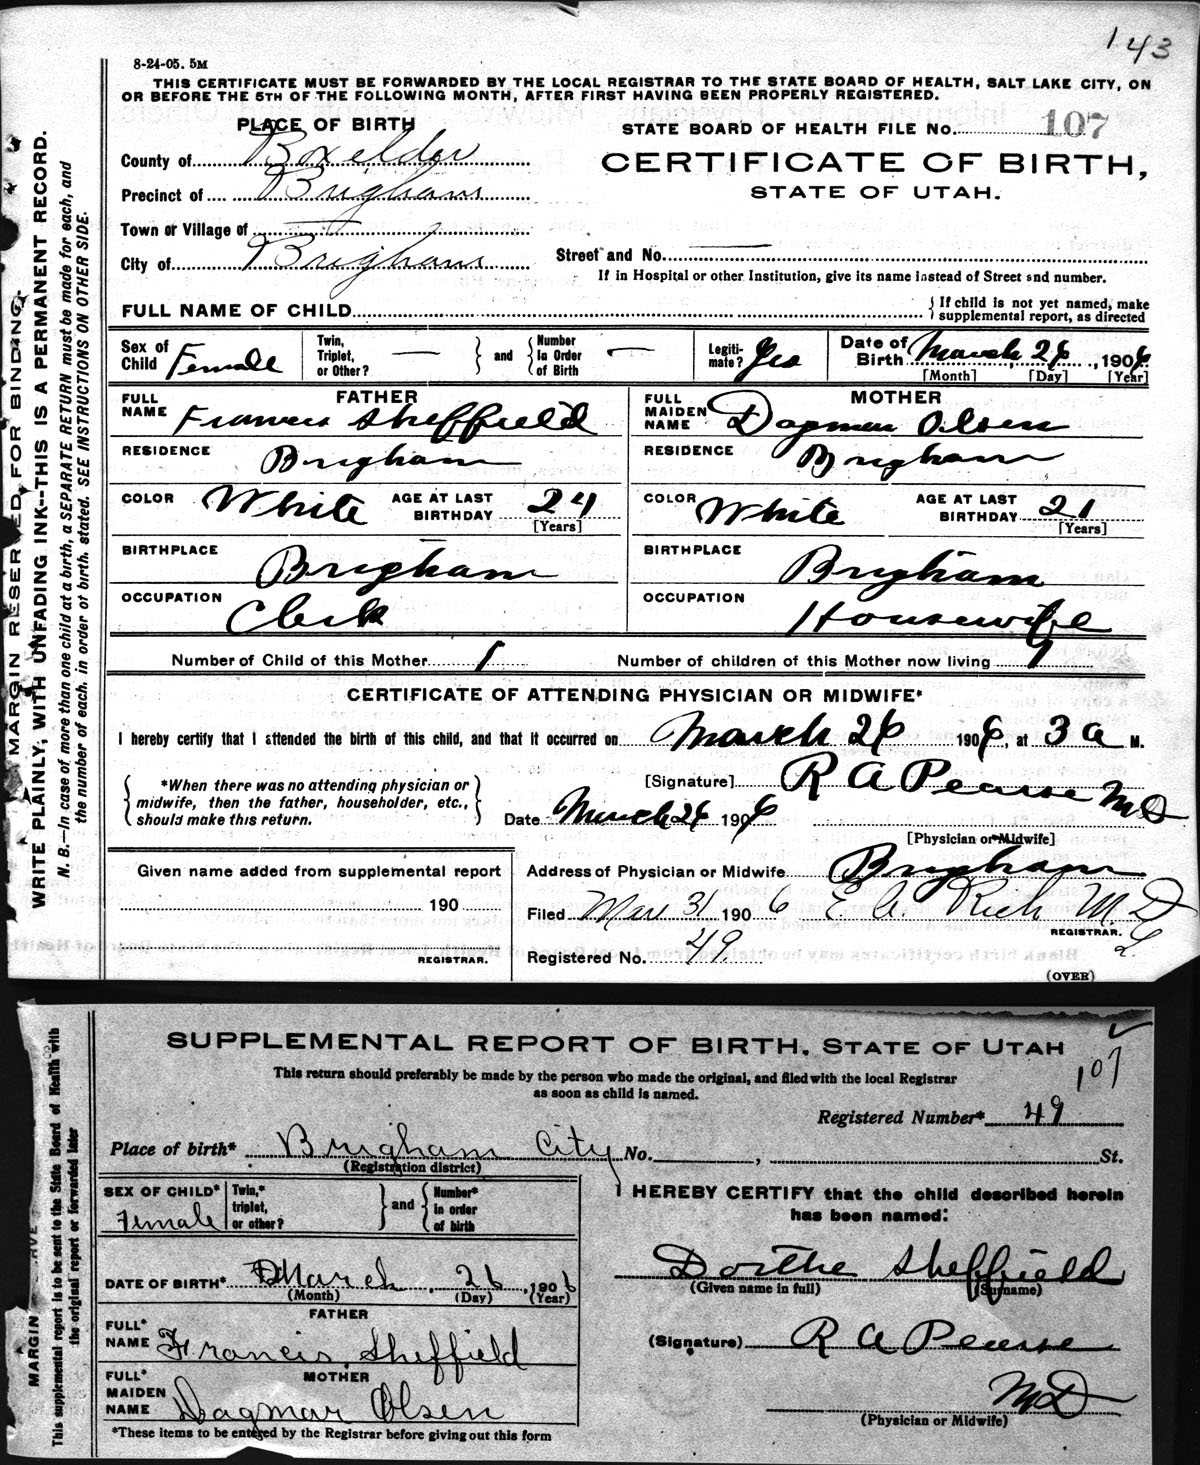 143
8-24-05. 5M
THIS CERTIFICATE MUST BE FORWARDED BY THE LOCAL REGISTRAR TO THE STATE BOARD OF HEALTH, SALT LAKE CITY, ON
OR BEFORE THE 5TH OF THE FOLLOWING MONTH, AFTER FIRST HAVING BEEN PROPERLY REGISTERED.
PLACE OF BIRTH
STATE BOARD OF HEALTH FILE No. 107
County of Boxelder
CERTIFICATE OF BIRTH,
Precinct of Brigham
STATE OF UTAH.
Town or Village of
City of Brigham
Street and No.
If in Hospital or other Institution, give its name instead of Street and number.
FULL NAME OF CHILD
If child is not yet named, make
supplemental report, as directed
Sex of Child Female
Twin, Triplet, or Other? — and Number in Order of Birth —
Legiti-mate? Yes
Date of Birth March, 26, 1906
[Month] [Day] [Year]
FATHER
FULL NAME Francis Sheffield
MOTHER
FULL MAIDEN NAME Dagmar Olsen
RESIDENCE Brigham
RESIDENCE Brigham
COLOR White AGE AT LAST BIRTHDAY 24 [Years]
COLOR White AGE AT LAST BIRTHDAY 21 [Years]
BIRTHPLACE Brigham
BIRTHPLACE Brigham
OCCUPATION Clerk
OCCUPATION Housewife
Number of Child of this Mother 1
Number of children of this Mother now living 1
CERTIFICATE OF ATTENDING PHYSICIAN OR MIDWIFE*
I hereby certify that I attended the birth of this child, and that it occurred on March 26 1906, at 3 a M.
*When there was no attending physician or
midwife, then the father, householder, etc.,
should make this return.
[Signature] R A Pearse MD
Date March 26 1906
[Physician or Midwife]
Given name added from supplemental report
190
REGISTRAR.
Address of Physician or Midwife Brigham
Filed Mar 31 1906 E. A. Rich M. D.
REGISTRAR.
Registered No. 49
(OVER)
MARGIN RESERVED FOR BINDING.
WRITE PLAINLY, WITH UNFADING INK--THIS IS A PERMANENT RECORD.
N. B.—In case of more than one child at a birth, a SEPARATE RETURN must be made for each, and
the number of each, in order of birth, stated. SEE INSTRUCTIONS ON OTHER SIDE.
SUPPLEMENTAL REPORT OF BIRTH, STATE OF UTAH
107
This return should preferably be made by the person who made the original, and filed with the local Registrar
as soon as child is named.
Registered Number* 49
Place of birth* Brigham City No. , St.
(Registration district)
SEX OF CHILD* Female
Twin,* triplet, or other? and Number* in order of birth
I HEREBY CERTIFY that the child described herein
has been named:
DATE OF BIRTH* March, 26, 1906
(Month) (Day) (Year)
Dorthe Sheffield
(Given name in full) (Surname)
FATHER
FULL* NAME Francis Sheffield
(Signature) R A Pearse
MOTHER
FULL* MAIDEN NAME Dagmar Olsen
MD
(Physician or Midwife)
*These items to be entered by the Registrar before giving out this form
MARGIN
This supplemental report is to be sent to the State Board of Health with
the original report or forwarded later